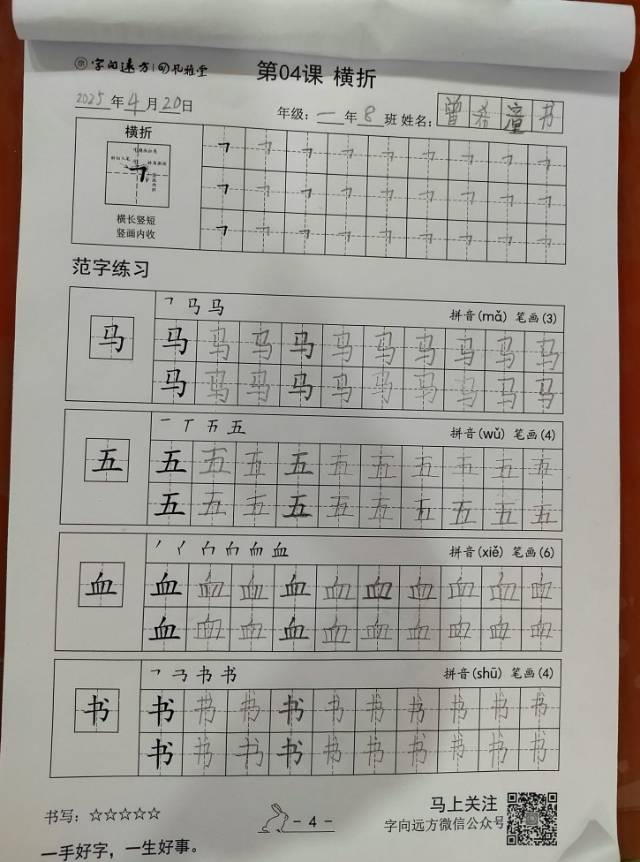 字向远方
第04课 横折
2025年4月20日 年级:一年8班 姓名:曾希潼书
横折
横长竖短
竖画内收
范字练习
马
拼音(mǎ) 笔画(3)
马 马 马 马 马 马 马 马 马 马 马
马 马 马 马 马 马 马 马 马 马 马
五
拼音(wǔ) 笔画(4)
五 五 五 五 五 五 五 五 五 五 五
五 五 五 五 五 五 五 五 五 五 五
血
拼音(xiě) 笔画(6)
血 血 血 血 血 血 血 血 血 血 血
血 血 血 血 血 血 血 血 血 血 血
书
拼音(shū) 笔画(4)
书 书 书 书 书 书 书 书 书 书 书
书 书 书 书 书 书 书 书 书 书 书
书写:☆☆☆☆☆
- 4 -
马上关注
字向远方微信公众号
一手好字，一生好事。